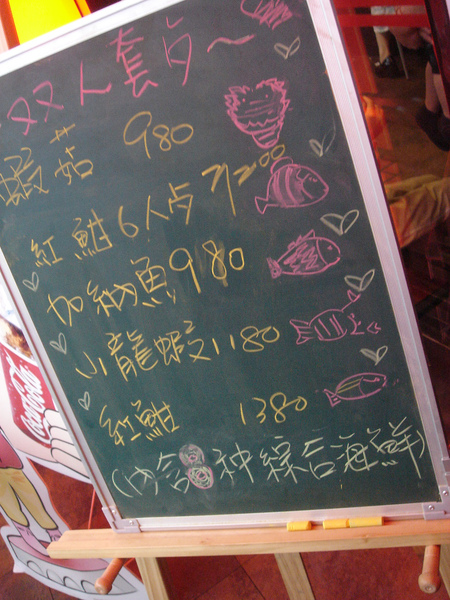 双人套卡~
蝦菇 980
紅魽6人卡7200
加納魚980
小龍蝦1180
紅魽 1380
(內含8种綜合海鮮)
Coca-Cola